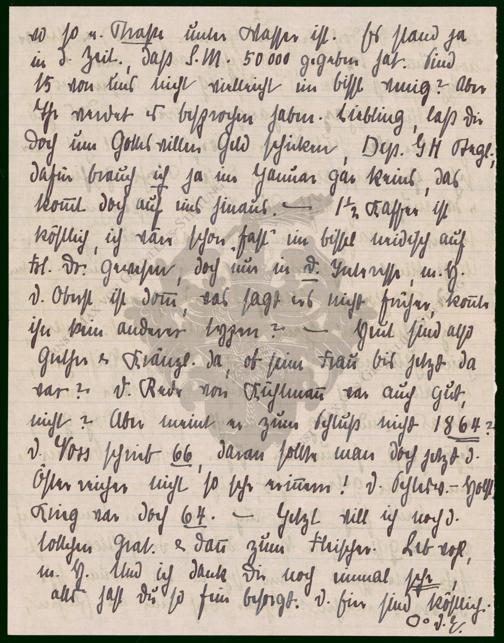 wo so u. Straße unter Wasser ist. Es stand ja
in d. Zeit., daß S.M. 50000 gegeben hat. Sind
15 von uns nicht vielleicht ein bißl wenig? Aber
Ihr werdet es besprochen haben. Liebling, laß dir
doch um Gotteswillen Geld schicken, Dep. GH
dafür brauch ich ja im Januar gar keins, das
komt doch auf eins hinaus. — 1½ Kaffee ist
köstlich, ich wär schon „fast" ein bißel neidisch auf
Frl. Dr. gewesen, doch nur in d. Interesse, m. H.
d. Oberst ist dom, was sagt er's nicht früher, konte
ihn kein anderer tippen? — Heut sind also
Günther & Kränzl. da, ob seine Frau bis jetzt da
war? d. Rede von Kühlmann war auch gut,
nicht? Aber meint er zum Schluß nicht 1864?
d. Voss schrieb 66, daran sollte man doch jetzt d.
Österreicher nicht so sehr erinern! d. Schlesw.-Holst.
Krieg war doch 64. — Jetzt will ich noch d.
Grat. & dan zum Fleischer. Leb wohl,
m. H. Und ich danke Dir noch einmal sehr,
alles hast du so fein besorgt. d. sind köstlich.